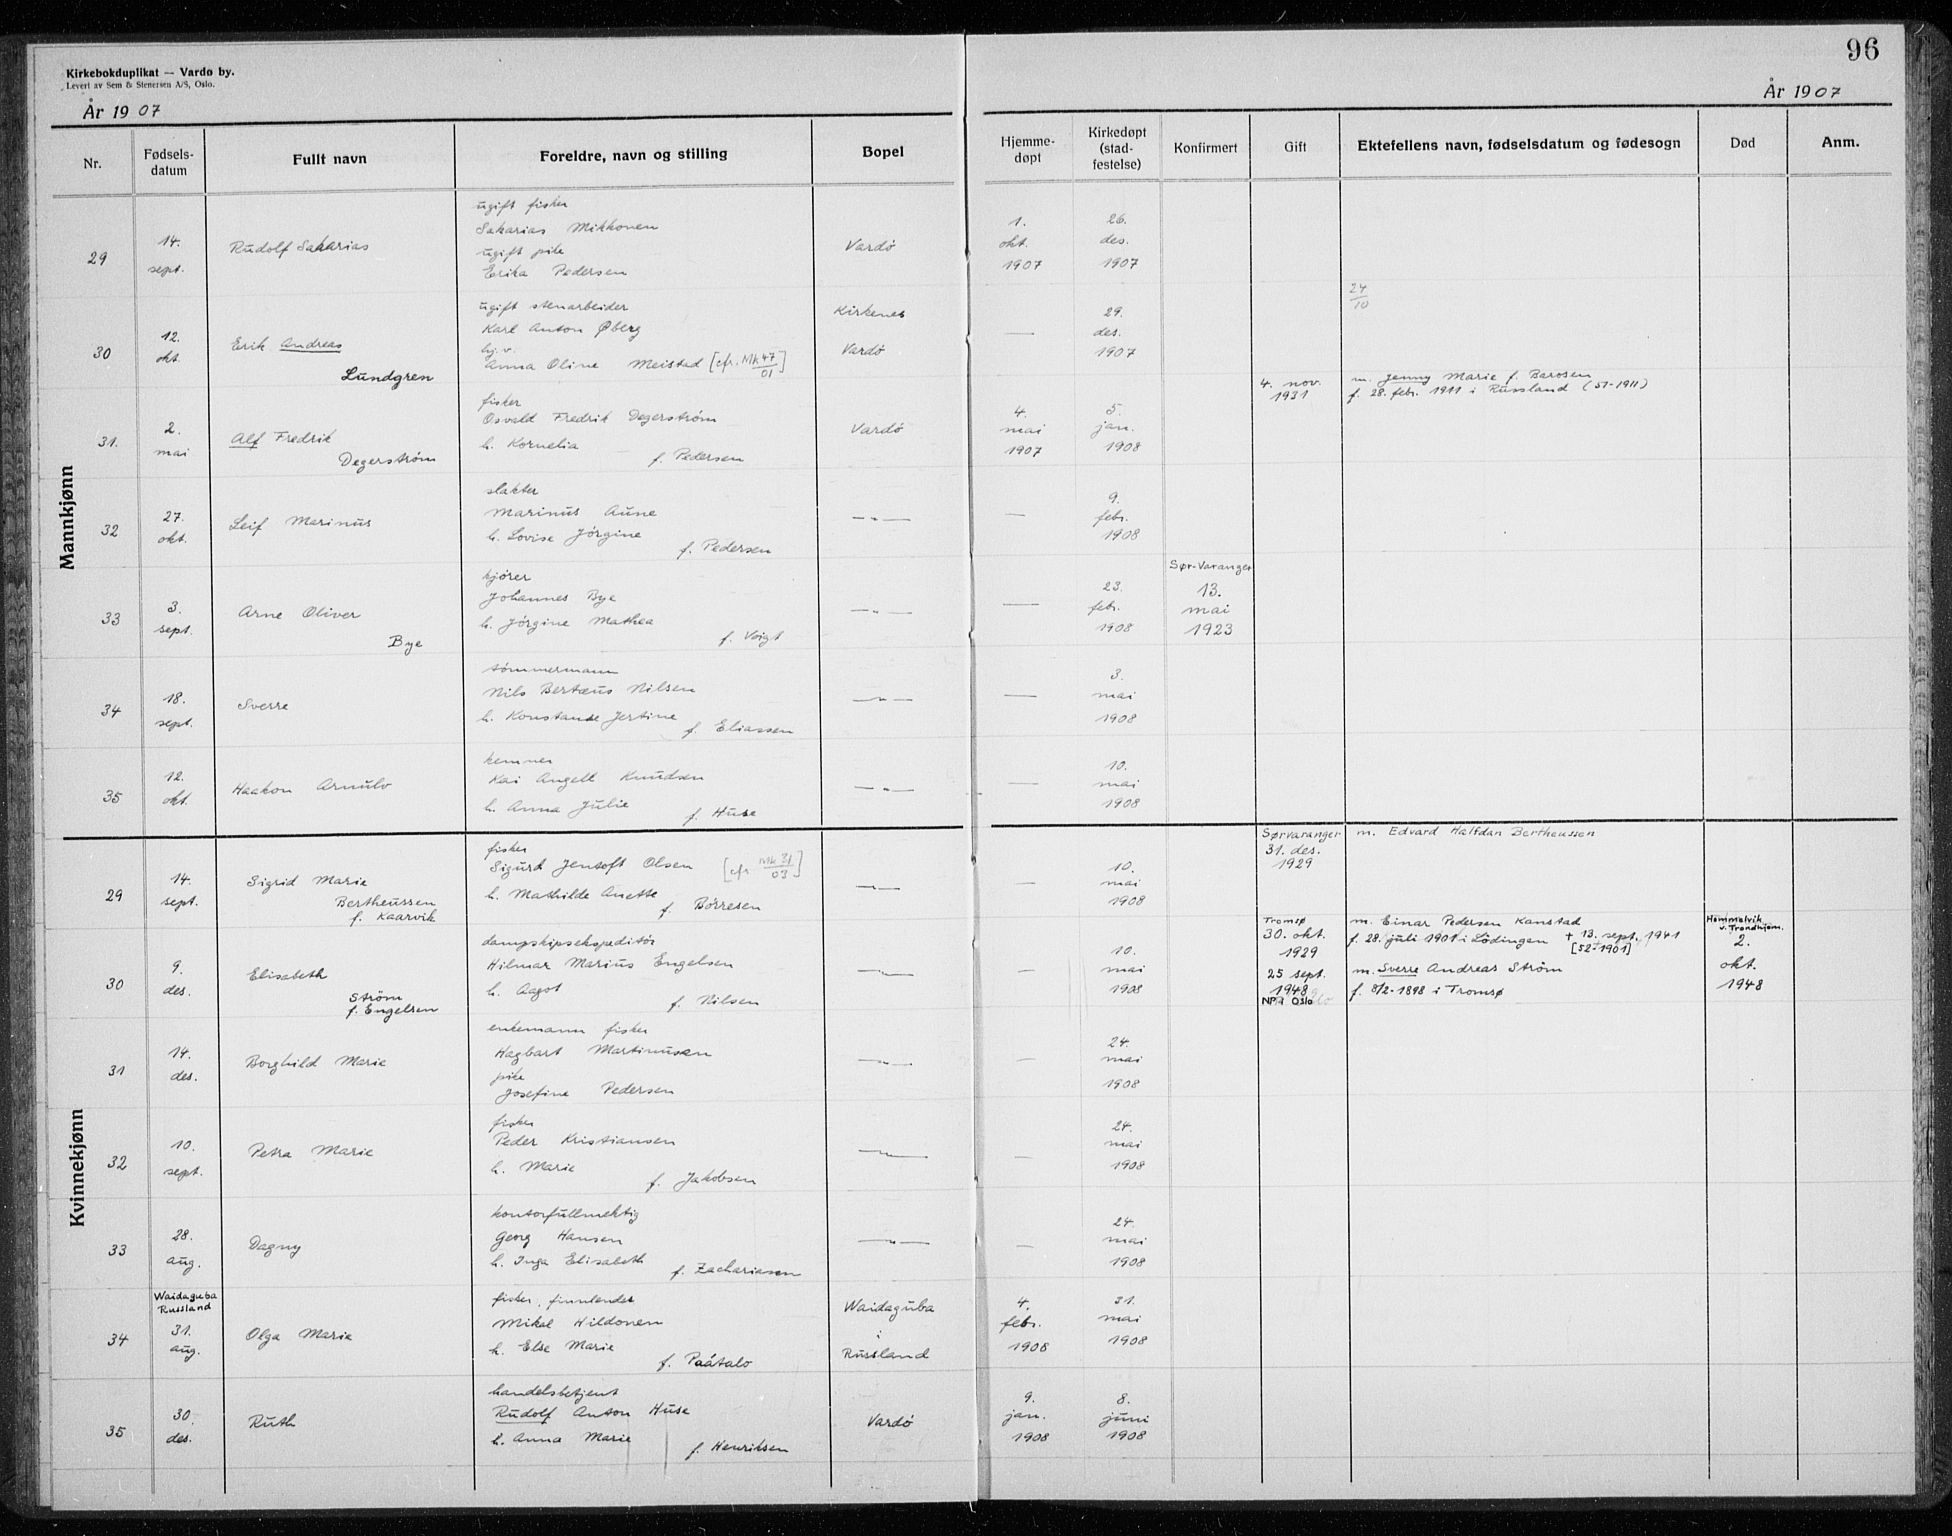 96
Kirkebokduplikat — Vardø by.
Levert av Sem & Stenersen A/S, Oslo.
År 1907
År 1907
Nr.
Fødsels-
datum
Fullt navn
Foreldre, navn og stilling
Bopel
Hjemme-
døpt
Kirkedøpt
(stad-
festelse)
Konfirmert
Gift
Ektefellens navn, fødselsdatum og fødesogn
Død
Anm.
Mannkjønn
29
14.
sept.
Rudolf Sakarias
ugift fisker
Sakarias Mikkonen
ugift pike
Erika Pedersen
Vardø
1.
okt.
1907
26.
des.
1907
30
12.
okt.
Erik Andreas
Lundgren
ugift stenarbeider
Karl Anton Øberg
hj.v.
Anna Oline Meistad [cfr. Mk 47/01]
Kirkenes
Vardø
—
29.
des.
1907
24/10
31.
2.
mai
Alf Fredrik
Degerstrøm
fisker
Osvald Fredrik Degerstrøm
h. Kornelia
f. Pedersen
Vardø
4.
mai
1907
5.
jan.
1908
4. nov.
1931
m. Jenny Marie f. Barosen
f. 28. febr. 1911 i Russland (51-1911)
32
27.
okt.
Leif Marinus
slakter
Marinus Aune
h. Lovise Jørgine
f. Pedersen
—"—
—
9.
febr.
1908
33
3.
sept.
Arne Oliver
Bye
kjører
Johannes Bye
h. Jørgine Mathea
f. Voigt
—"—
—
23.
febr.
1908
Sør-Varanger
13.
mai
1923
34
18.
sept.
Sverre
tømmermann
Nils Berteus Nilsen
h. Konstanse Jertine
f. Eliassen
—"—
—
3.
mai
1908
35
12.
okt.
Haakon Arnulv
kemner
Kai Angell Knudsen
h. Anna Julie
f. Huse
—"—
—
10.
mai
1908
Kvinnekjønn
29
14.
sept.
Sigrid Marie
Bertheussen
f. Kaarvik
fisker
Sigurd Jentoft Olsen [cfr Mk 31/03]
h. Mathilde Anette
f. Børresen
—"—
—
10.
mai
1908
Sørvaranger
31. des.
1929
m. Edvard Halfdan Bertheussen
30
9.
des.
Elisabeth
Strøm
f. Engelsen
dampskipsekspeditør
Hilmar Marius Engelsen
h. Aagot
f. Nilsen
—"—
—
10.
mai
1908
Tromsø
30. okt.
1929
m. Einar Pedersen Kanstad
f. 28. juli 1901 i Lödingen + 13. sept. 1941
[52-1901]
25 sept.
1948
NPA Oslo
m. Sverre Andreas Strøm
f. 8/2-1898 i Tromsø
Hommelvik
v. Trondhjem.
2.
okt.
1948
31
14.
des.
Borghild Marie
enkemann fisker
Hagbart Martinusen
pike
Josefine Pedersen
—"—
—
24.
mai
1908
32
10.
sept.
Petra Marie
fisker
Peder Kristiansen
h. Marie
f. Jakobsen
—"—
—
24.
mai
1908
33
28.
aug.
Dagny
kontorfullmektig
Georg Hansen
h. Inga Elisabeth
f. Zachariasen
—"—
—
24.
mai
1908
34
Waidaguba
Russland
31.
aug.
Olga Marie
fisker, finnlender
Mikal Hildonen
h. Else Marie
f. Paátalo
Waidaguba
i
Russland
4.
febr.
1908
31.
mai
1908
35
30.
des.
Ruth
handelsbetjent
Rudolf Anton Huse
h. Anna Marie
f. Henriksen
Vardø
9.
jan.
1908
8.
juni
1908